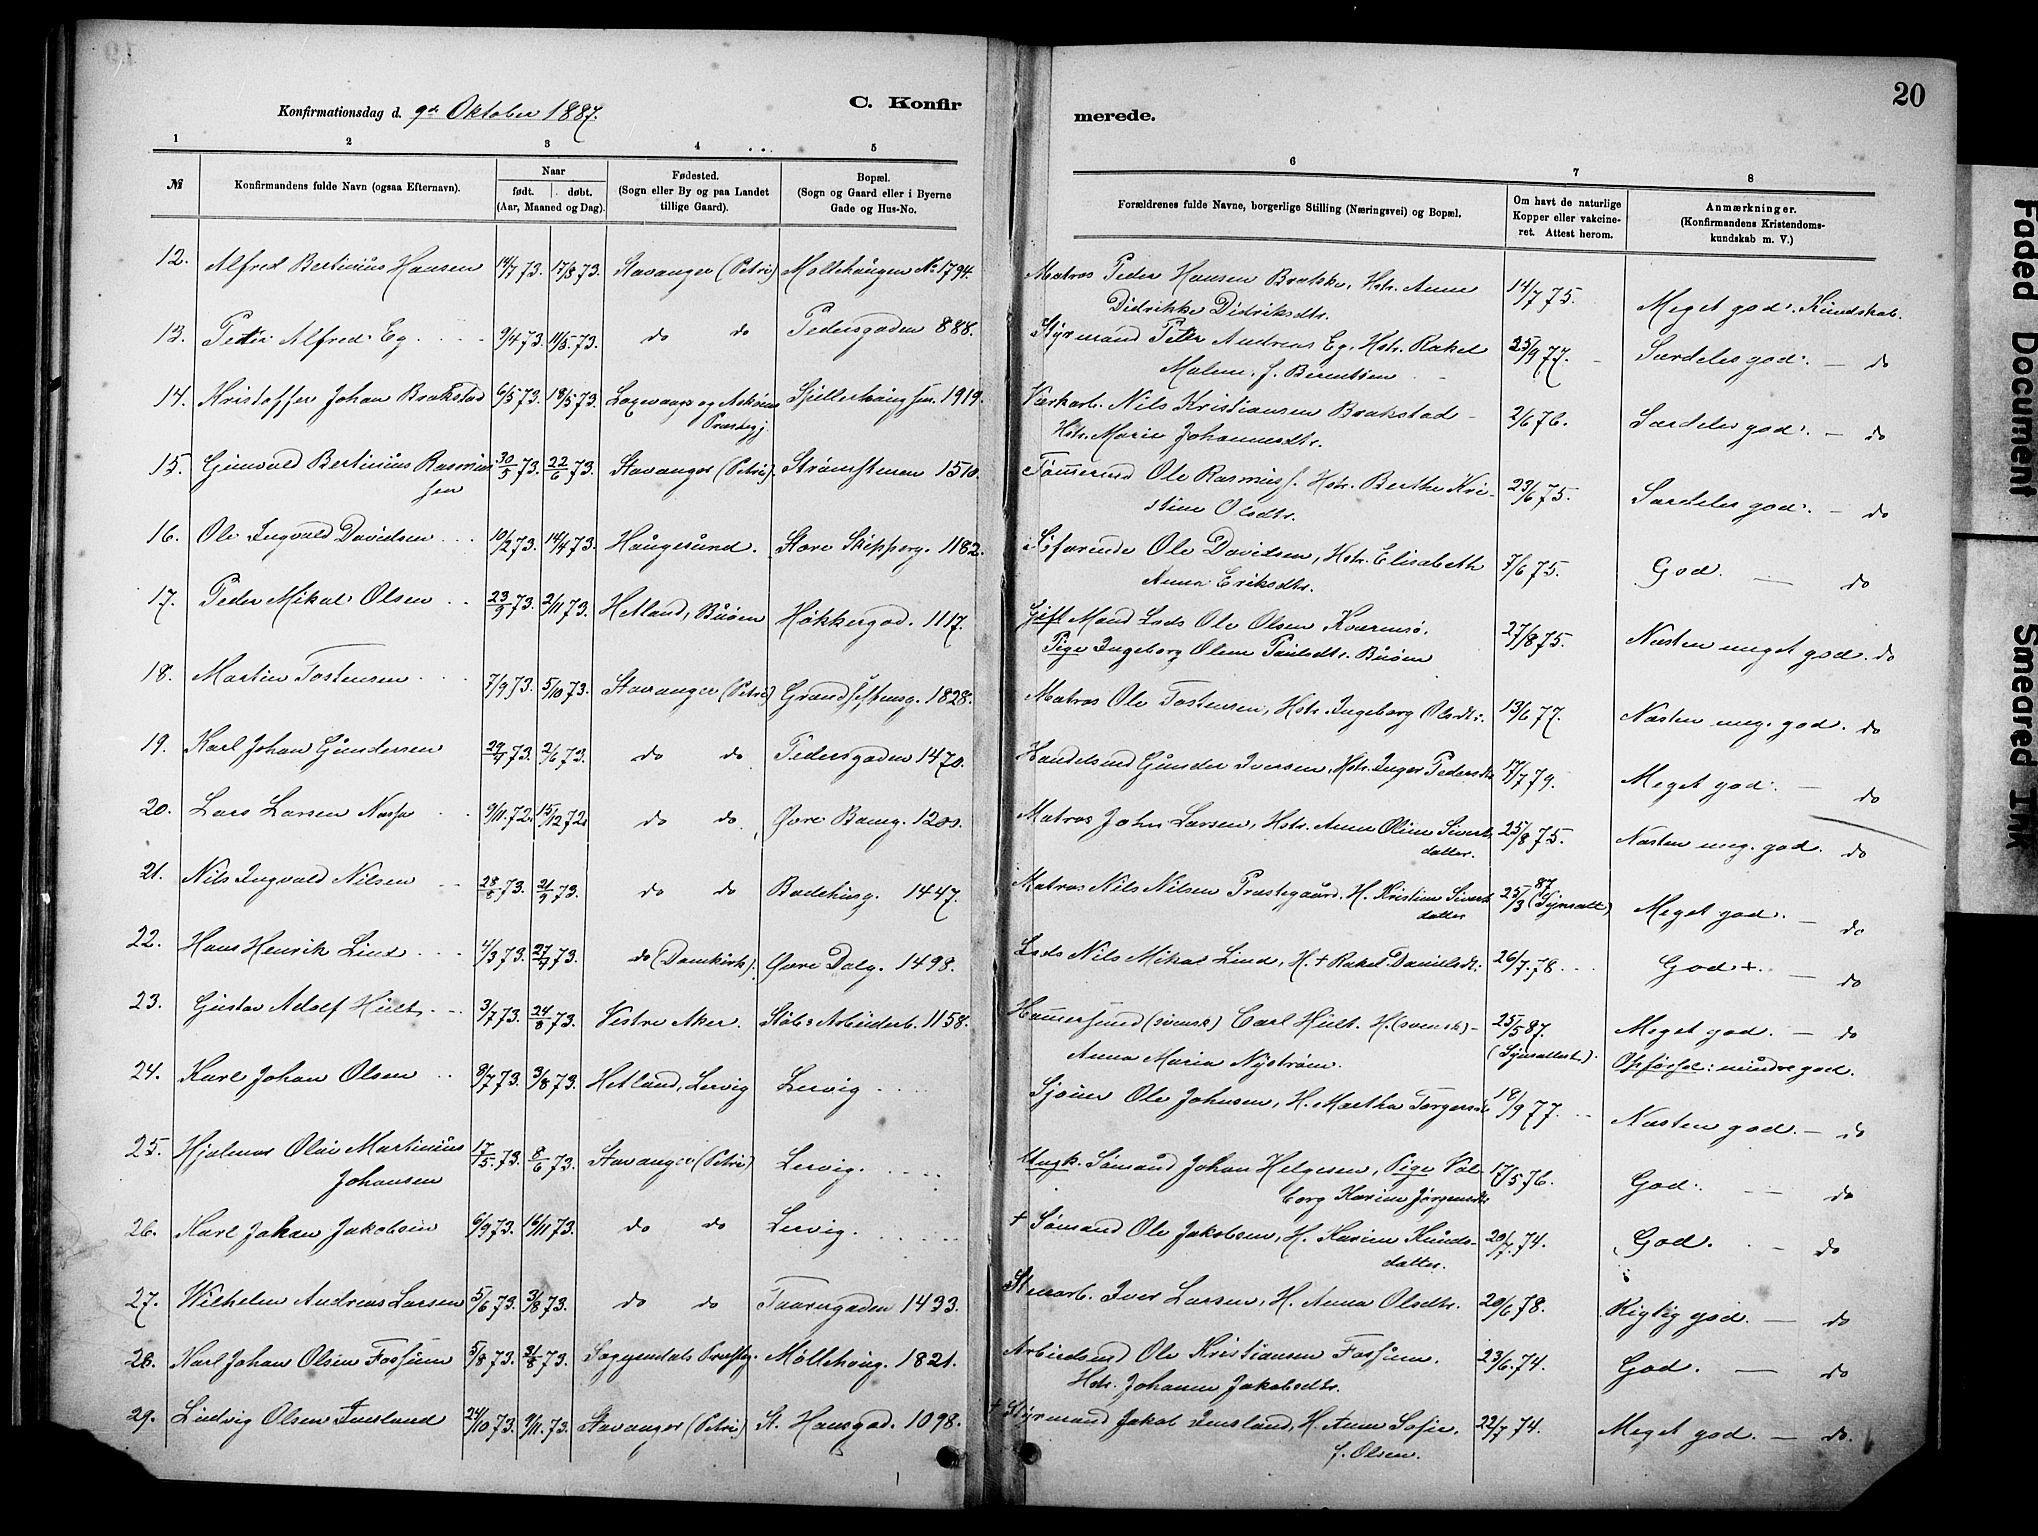 20
C. Konfir
merede.
Konfirmationsdag d. 9de Oktober 1887.
1 2 3 4 5
6 7 8
№ Konfirmandens fulde Navn (ogsaa Efternavn). Naar født. døbt. (Aar, Maaned og Dag). Fødested. (Sogn eller By og paa Landet tillige Gaard). Bopæl. (Sogn og Gaard eller i Byerne Gade og Hus-No.
Forældrenes fulde Navne, borgerlige Stilling (Næringsvei) og Bopæl. Om havt de naturlige Kopper eller vakcineret. Attest herom. Anmærkninger. (Konfirmandens Kristendomskundskab m. V.)
12. Alfred Bertinius Hansen 14/7 73. 17/8 73. Stavanger (Petri) Møllehaugen No 1794. Matros Peder Hansen Bratske, Hstr. Anne 14/7 75. Meget god. Kundskab.
Didrikke Didriksdtr.
13. Peter Alfred Eg 9/4 73. 11/5 73. do do Pedersgaden 888. Styrmand Peter Andreas Eg, Hstr. Rakel 25/9 77. Særdeles god. — do
Malene f. Berentsen
14. Kristoffer Johan Brakstad 6/5 73. 18/5 73. Spillerhaugsn. 1919. Værkarb. Nils Kristiansen Brakstad 2/6 76. Særdeles god. — do
Præstegj. Hstr. Marie Johannesdtr.
15. Gunvald Bertinius Rasmus 30/5 73. 22/6 73. Stavanger (Petri). Strømstenen 1510. Tømermd Ole Rasmuss. Hstr. Berthe Kri- 23/6 75. Særdeles god. — do
sen stine Olsdtr.
16. Ole Ingvald Davidsen 10/2 73. 14/4 73. Haugesund. Store Skipperg. 1182. Søfarende Ole Davidsen, Hstr. Elisabeth 7/6 75. God. — do
Anna Eriksdtr.
17. Peder Mikal Olsen 23/9 73. 2/11 73. Hetland, Buøen Høkkergad. 1117. Gift Mand Lods Ole Olsen Kvernsø. 27/8 75. Næsten meget god. do
Pige Ingeborg Olene Paulsdtr. Buøen
18. Martin Tostensen 7/9 73. 5/10 73. Stavanger (Petri) 1828. Matros Ole Tostensen, Hstr. Ingeborg Olsdtr. 13/6 77. Næsten meg. god. do
19. Karl Johan Gundersen 2/6 73. do do Pedersgaden 1470. Handelsmd Gunder Iversen, Hstr. Inger Pedersdtr 17/7 79. Meget god. — do
20. Lars Larsen Næsse 9/11 72. 15/12 72. do do Øvre Bang. 1201. Matros John Larsen, Hstr. Anne Oline Sivert- 25/8 75. Næsten meg. god. do
datter.
21. Nils Ingvald Nilsen 28/8 73. 21/9 73. do do Badehusg. 1447. Matros Nils Nilsen Præstegaard, H. Kristine Sivert 25/3 87 (Synsatt) Meget god. — do
datter
22. Hans Henrik Lind 4/3 73. 27/9 73. do (Domkirk). Øvre Dalg. 1498. Lods Nils Mikal Lind, H. + Rakel Danielsdt. 26/7 78. God +. — do
23. Gustav Adolf Hult 3/7 73. 24/8 73. Vestre Aker. Støbs Arbeiderb. 1158. Hamersmd (svensk) Carl Hult. H. (svensk) 25/5 87. Meget god. — do
Anna Maria Nystrøm. (Synsattest). Opførsel: mindre god.
24. Karl Johan Olsen 8/7 73. 3/8 73. Hetland, Lervig Lervig Sjøm Ole Johnsen, H. Martha Torgersdtr 18/9 77. Næsten god. — do
25. Hjalmar Olai Martinius 17/5 73. 8/6 73. Stavanger (Petri) Lervig. Ungk. Sømand Johan Helgesen, Pige Val- 17/5 76. God. — do
Johansen borg Karine Jørgensdtr
26. Karl Johan Jakobsen 6/9 73. 16/11 73. do do Lervig. + Sømand Ole Jakobsen, H. Karine Knuds- 20/7 74. God. — do
datter.
27. Wilhelm Andreas Larsen 5/6 73. 3/8 73. do do Taarngaden 1433. Stenarb. Iver Larsen, H. Anna Olsdtr. 20/6 78. Rigtig god. — do
28. Karl Johan Olsen Fossum 5/8 73. 31/8 73. Soggendals Præsteg. Møllehaug. 1821. Arbeidsmd Ole Kristiansen Fossum. 23/6 74. God. — do
Hstr. Johanne Jakobsdtr.
29. Ludvig Olsen Imsland 24/10 73. 9/11 73. Stavanger (Petri) St. Hansgad. 1098. + Styrmand Jakob Imsland, H. Anne Sofie, 22/7 74. Meget god. — do.
f. Olsen.
Faded Document Smeared Ink